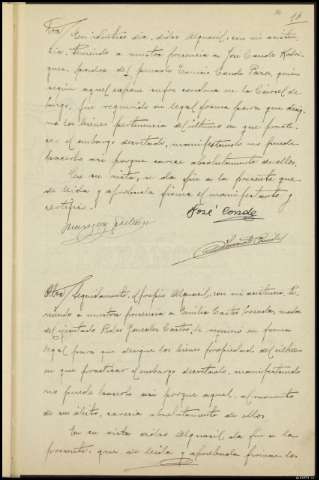 18
Otra/ En indicho dia, dicho Alguacil, con mi asisten-
cia, teniendo a nuestra presencia a José Conde Rodri-
guez, padre del penado Francisco Conde Parra, quien
según aquel expresa sufre condena en la Cárcel de
fue requerido en legal forma para que desig-
ne los bienes pertenencia del último en que practi-
car el embargo decretado, manifestando no puede
hacerlo así porque carece absolutamente de ellos.
En su vista, se da fin a la presente que
se leida y aprobada firma el manifestante y
certifico.
José Conde
Otra/ Seguidamente, el propio Alguacil, con mi asistencia, te-
niendo a nuestra presencia a Emilia Castro Gonzalez, madre
del ejecutado Pedro Gonzalez Castro, la requirió en forma
legal para que designe los bienes propiedad del mismo
en que practicar el embargo decretado, manifestando
no puede hacerlo así porque aquel, al momento
de su óbito, carecia absolutamente de ellos.
En su vista dicho Alguacil da fin a la
presente, que se leida y aprobada firman los